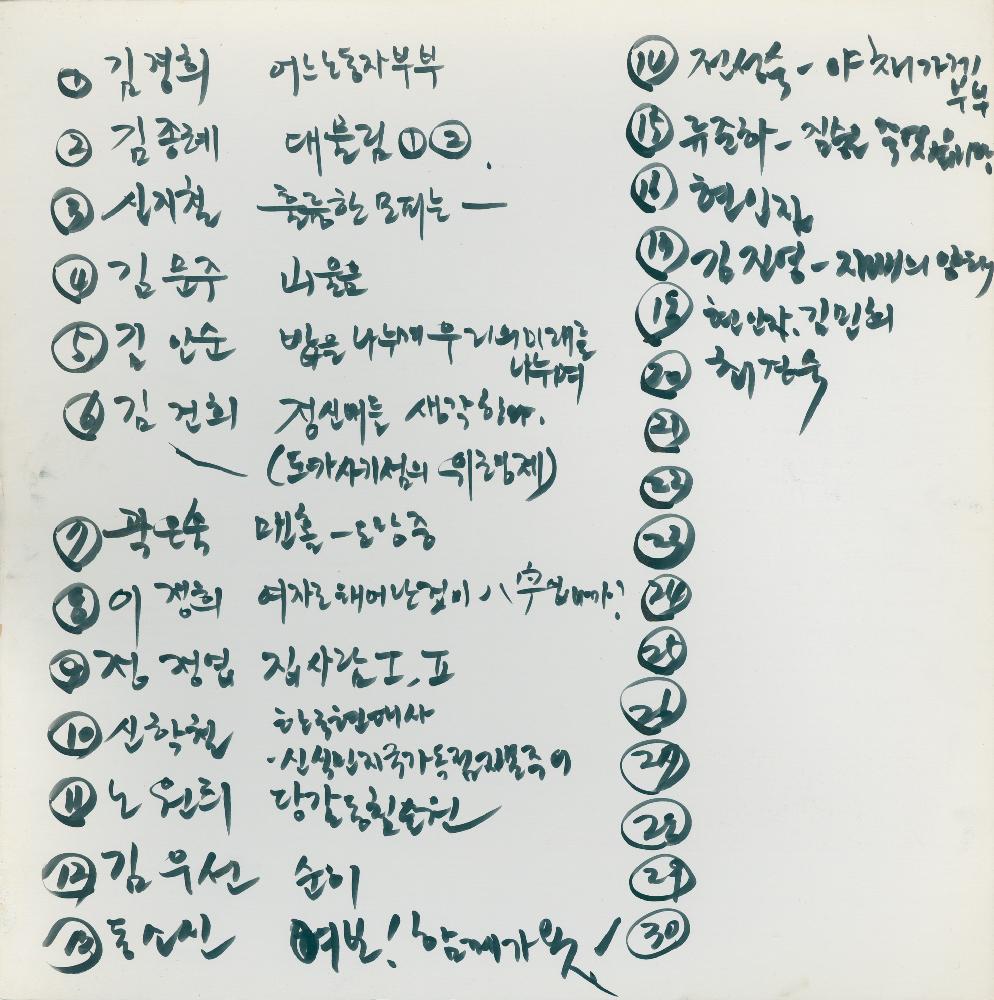 ① 김경희 어느노동자부부
② 김종례 대물림 ① ②.
③ 신지철 흐르는한 모피는 —
④ 김문주 山울음
⑤ 김안순 밥을 나누세 우리의 미래를
나누며
⑥ 김건희 정신대를 생각하다.
(도카사키섬의 위로 )
⑦ 곽은숙 맨홀 - 도난중
⑧ 이경희 여자로태어난것이 八字입니까?
⑨ 정정엽 집사람 I, II
⑩ 신학철 한국현대사
- 신식민지국가독점자본주의
⑪ 노원희 당감동철수원
⑫ 김우선 순이
⑬ 둥소신 여보! 함께가옷!
⑭ 전성숙 - 야채가게
부부
⑮ 류준하 -
⑯ 현인집
⑰ 김진영 - 지배의
⑱ 현인작, 김민희
⑳ 최경숙
㉑
㉒
㉓
㉔
㉕
㉖
㉗
㉘
㉙
㉚